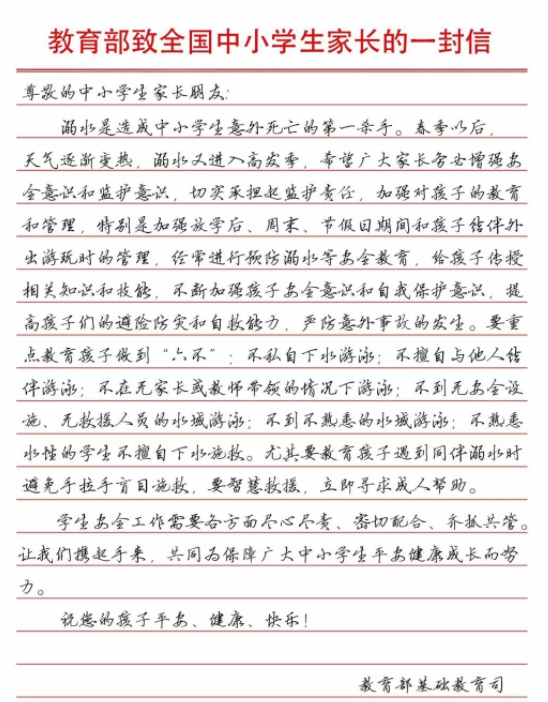 教育部致全国中小学生家长的一封信
尊敬的中小学生家长朋友:
溺水是造成中小学生意外死亡的第一杀手。春季以后,
天气逐渐变热,溺水又进入高发季,希望广大家长务必增强安
全意识和监护意识,切实承担起监护责任,加强对孩子的教育
和管理,特别是加强放学后、周末、节假日期间和孩子结伴外
出游玩时的管理,经常进行预防溺水等安全教育,给孩子传授
相关知识和技能,不断加强孩子安全意识和自我保护意识,提
高孩子们的避险防灾和自救能力,严防意外事故的发生。要重
点教育孩子做到“六不”:不私自下水游泳;不擅自与他人结
伴游泳;不在无家长或教师带领的情况下游泳;不到无安全设
施、无救援人员的水域游泳;不到不熟悉的水域游泳;不熟悉
水性的学生不擅自下水施救。尤其要教育孩子遇到同伴溺水时
避免手拉手盲目施救,要智慧救援,立即寻求成人帮助。
学生安全工作需要各方面尽心尽责、密切配合、齐抓共管。
让我们携起手来,共同为保障广大中小学生平安健康成长而努
力。
祝您的孩子平安、健康、快乐!
教育部基础教育司